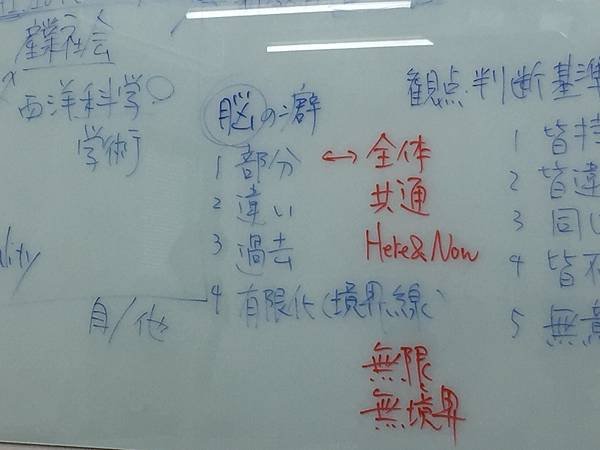 産業社会
西洋科学
学術
脳の癖
1 部分 ↔ 全体
2 違い 共通
3 過去 Here&Now
4 有限化(境界線)
無限
無境界
自/他
観点・判断基準
1 皆持
2 皆違
3 同じ
4 皆不
5 無意